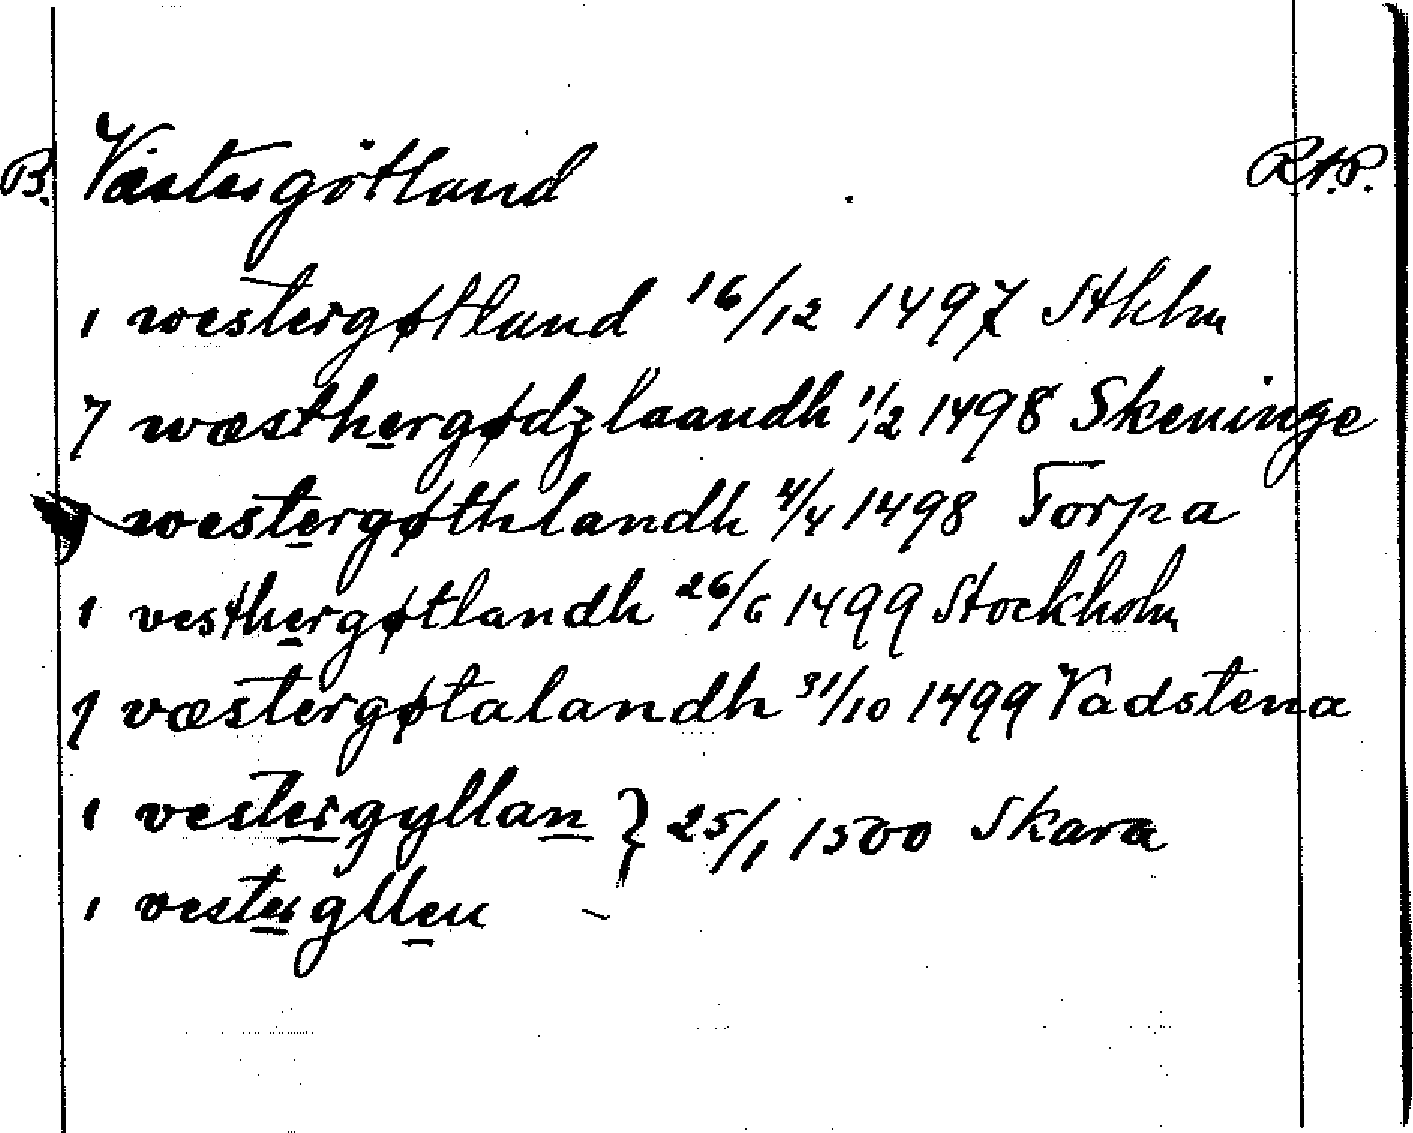 B. Västergötland RAP.
1 westergøtland 16/12 1497 Sthlm
7 wæsthergødzlaandh 1/2 1498 Skeninge
westergøthlandh 4/4 1498 Torpa
1 vesthergøtlandh 26/6 1499 Stockholm
7 væstergøtalandh 31/10 1499 Vadstena
1 vestergyllan } 25/1 1500 Skara
1 vestergllen